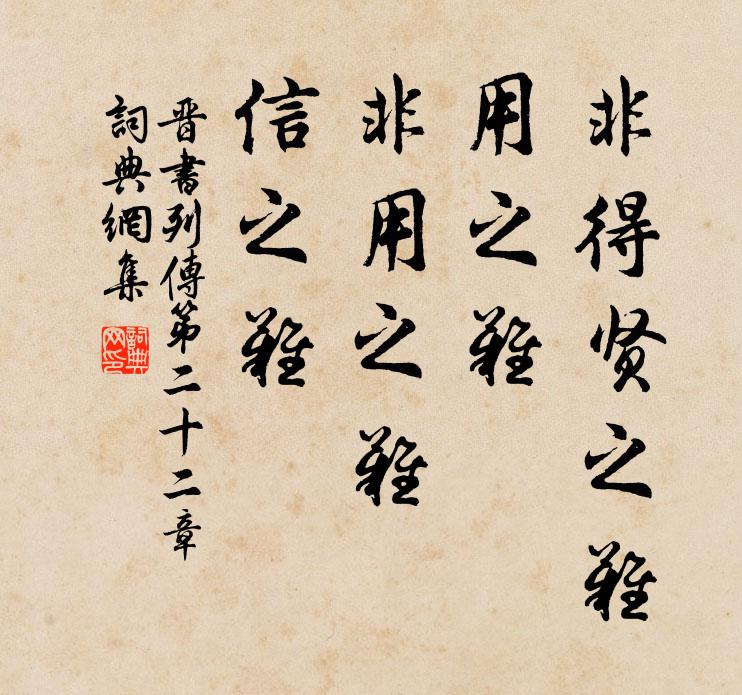 非得贤之難
用之難
非用之難
信之難
晋書列傳第二十二章
詞典網集
詞典网印